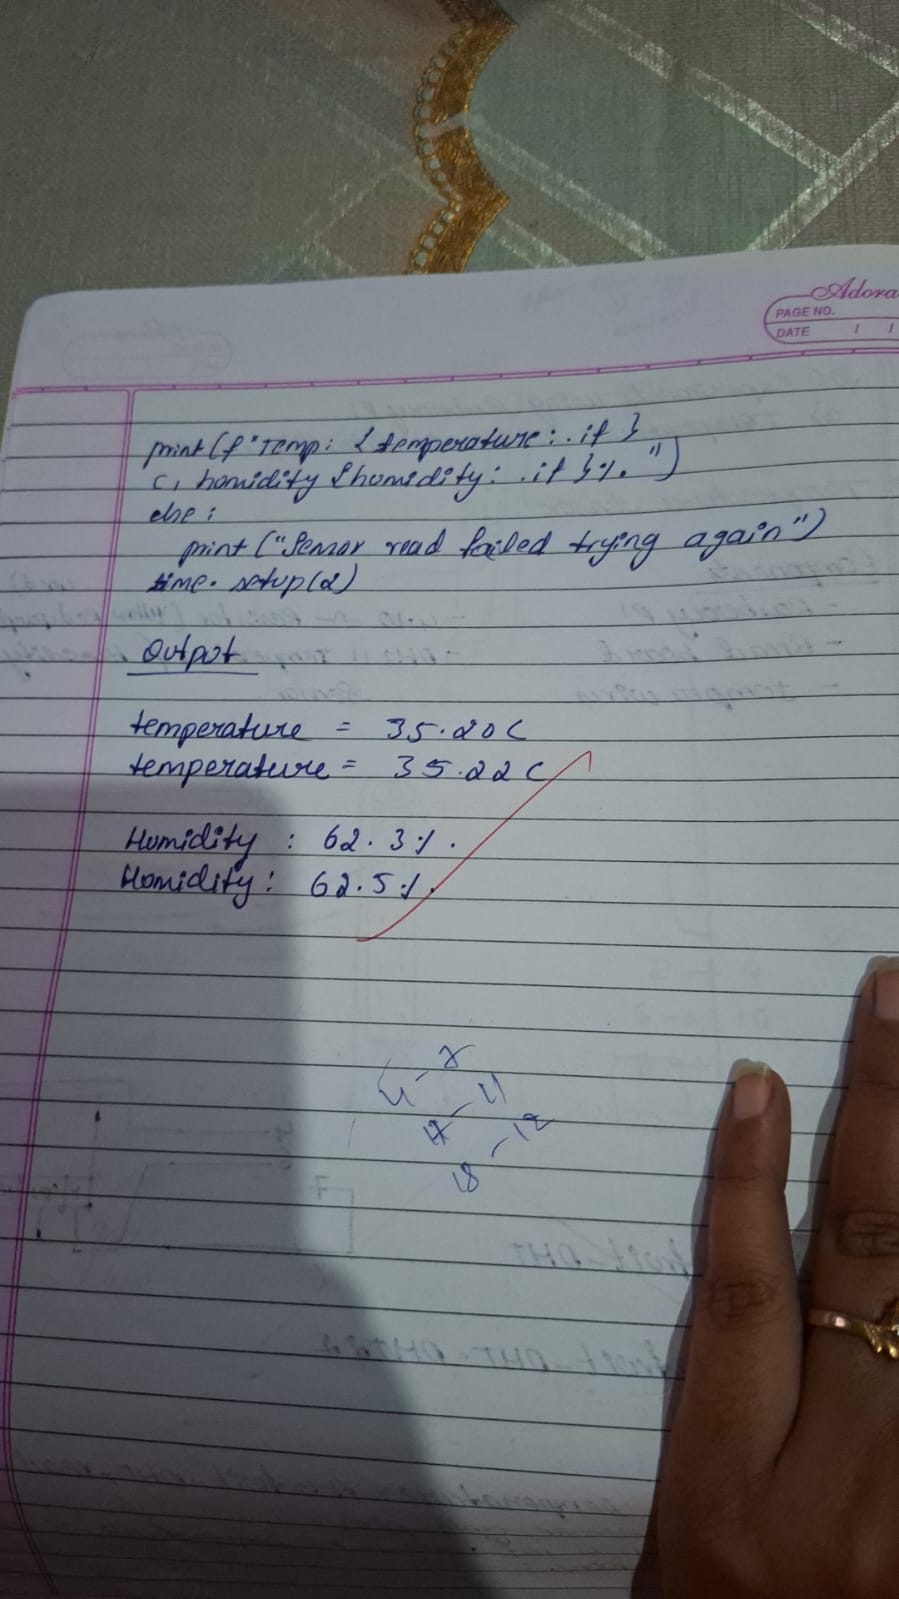 Adora
PAGE NO.
DATE / /
print(f"Temp: {temperature:.1f}
C, homidity {homidity: .1f}%.")
else:
print ("Sensor read failed trying again")
time. setup(2)
Output
temperature = 35.20C
temperature = 35.22C
Homidity : 62.3%.
Homidity : 62.5%.
11
12
18